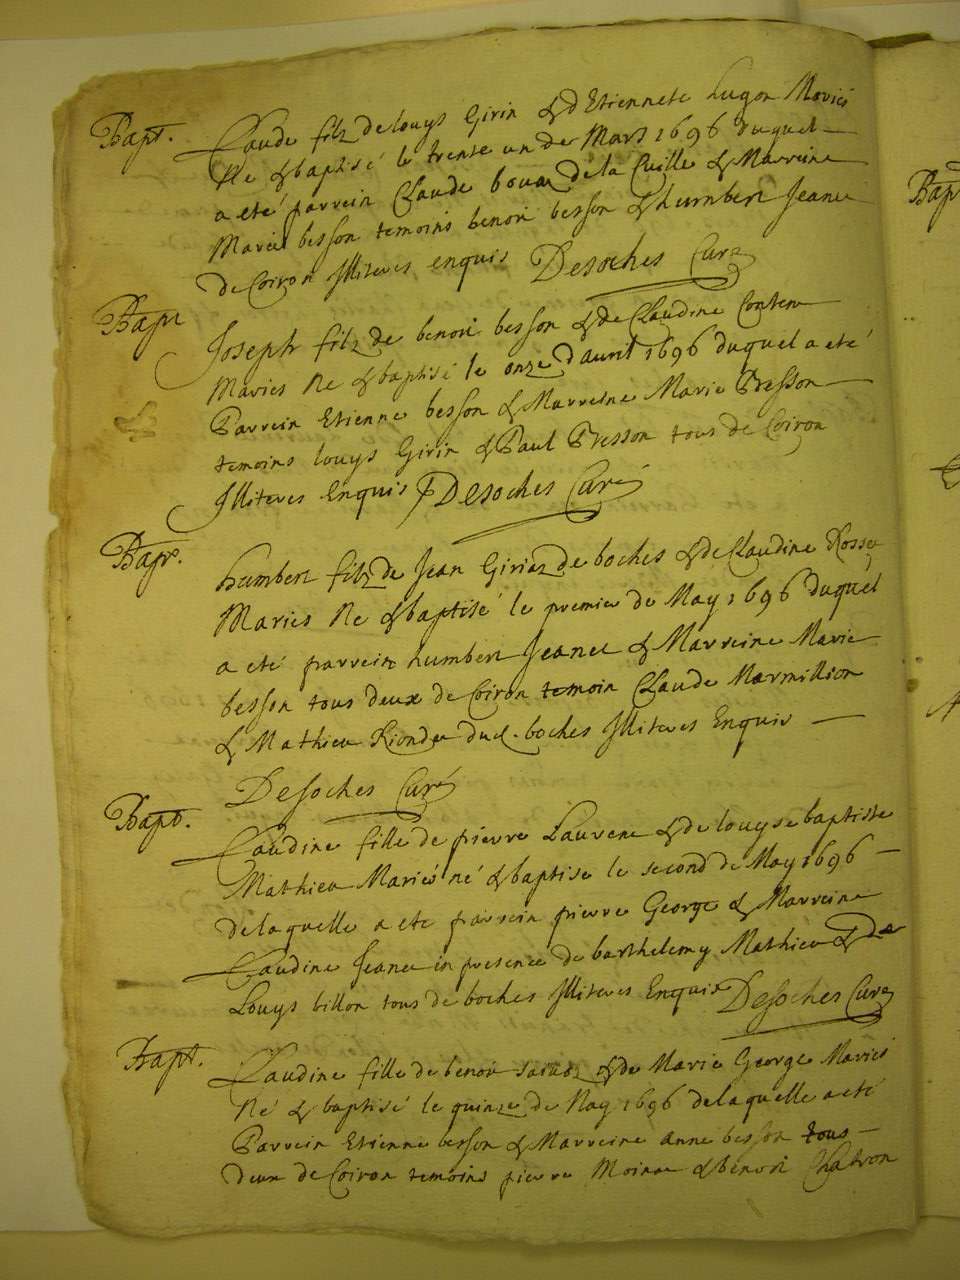 Bapt. Claude filz de louys Girin & d Etiennete hugon Mariés
Né & baptisé le trente un de Mars 1696 duquel
a eté parrein Claude bouar de la Cuille & Marreine
Marie besson temoins benoit besson & humbert Jeane
de Coiron Illiteres enquis Desoches Curé
Bapt Joseph filz de benoit besson & de Claudine Conten
Mariés Né & baptisé le onze d'avril 1696 duquel a eté
Parrein Etienne besson & Marreine Marie Besson
temoins louys Girin & Paul Besson tous de Coiron
Illiteres Enquis Desoches Curé
Bapt. humbert filz de Jean Giriaz de boches & de Claudine
Mariés Né & baptisé le premier de May 1696 duquel
a eté parrein humbert Jeanet & Marreine Marie
besson tous deux de Coiron temoin Claude Marmillion
& Mathieu Riondet dud. boches Illiteres Enquis
Desoches Curé
Bapt. Claudine fille de pierre Laurens & de louyse baptiste
Mathieu Mariés né & baptisé le second de May 1696
de laquelle a eté parrein pierre George & Marreine
Claudine Jeanet in presence de barthelemy Mathieu & de
Louys billon tous de boches Illiteres Enquis Desoches Curé
Bapt. Claudine fille de benoit & de Marie George Mariés
Né & baptisé le quinze de May 1696 de laquelle a eté
Parrein Etienne besson & Marreine anne besson tous
deux de Coiron temoins pierre Moine & benoit Chatron
Bap